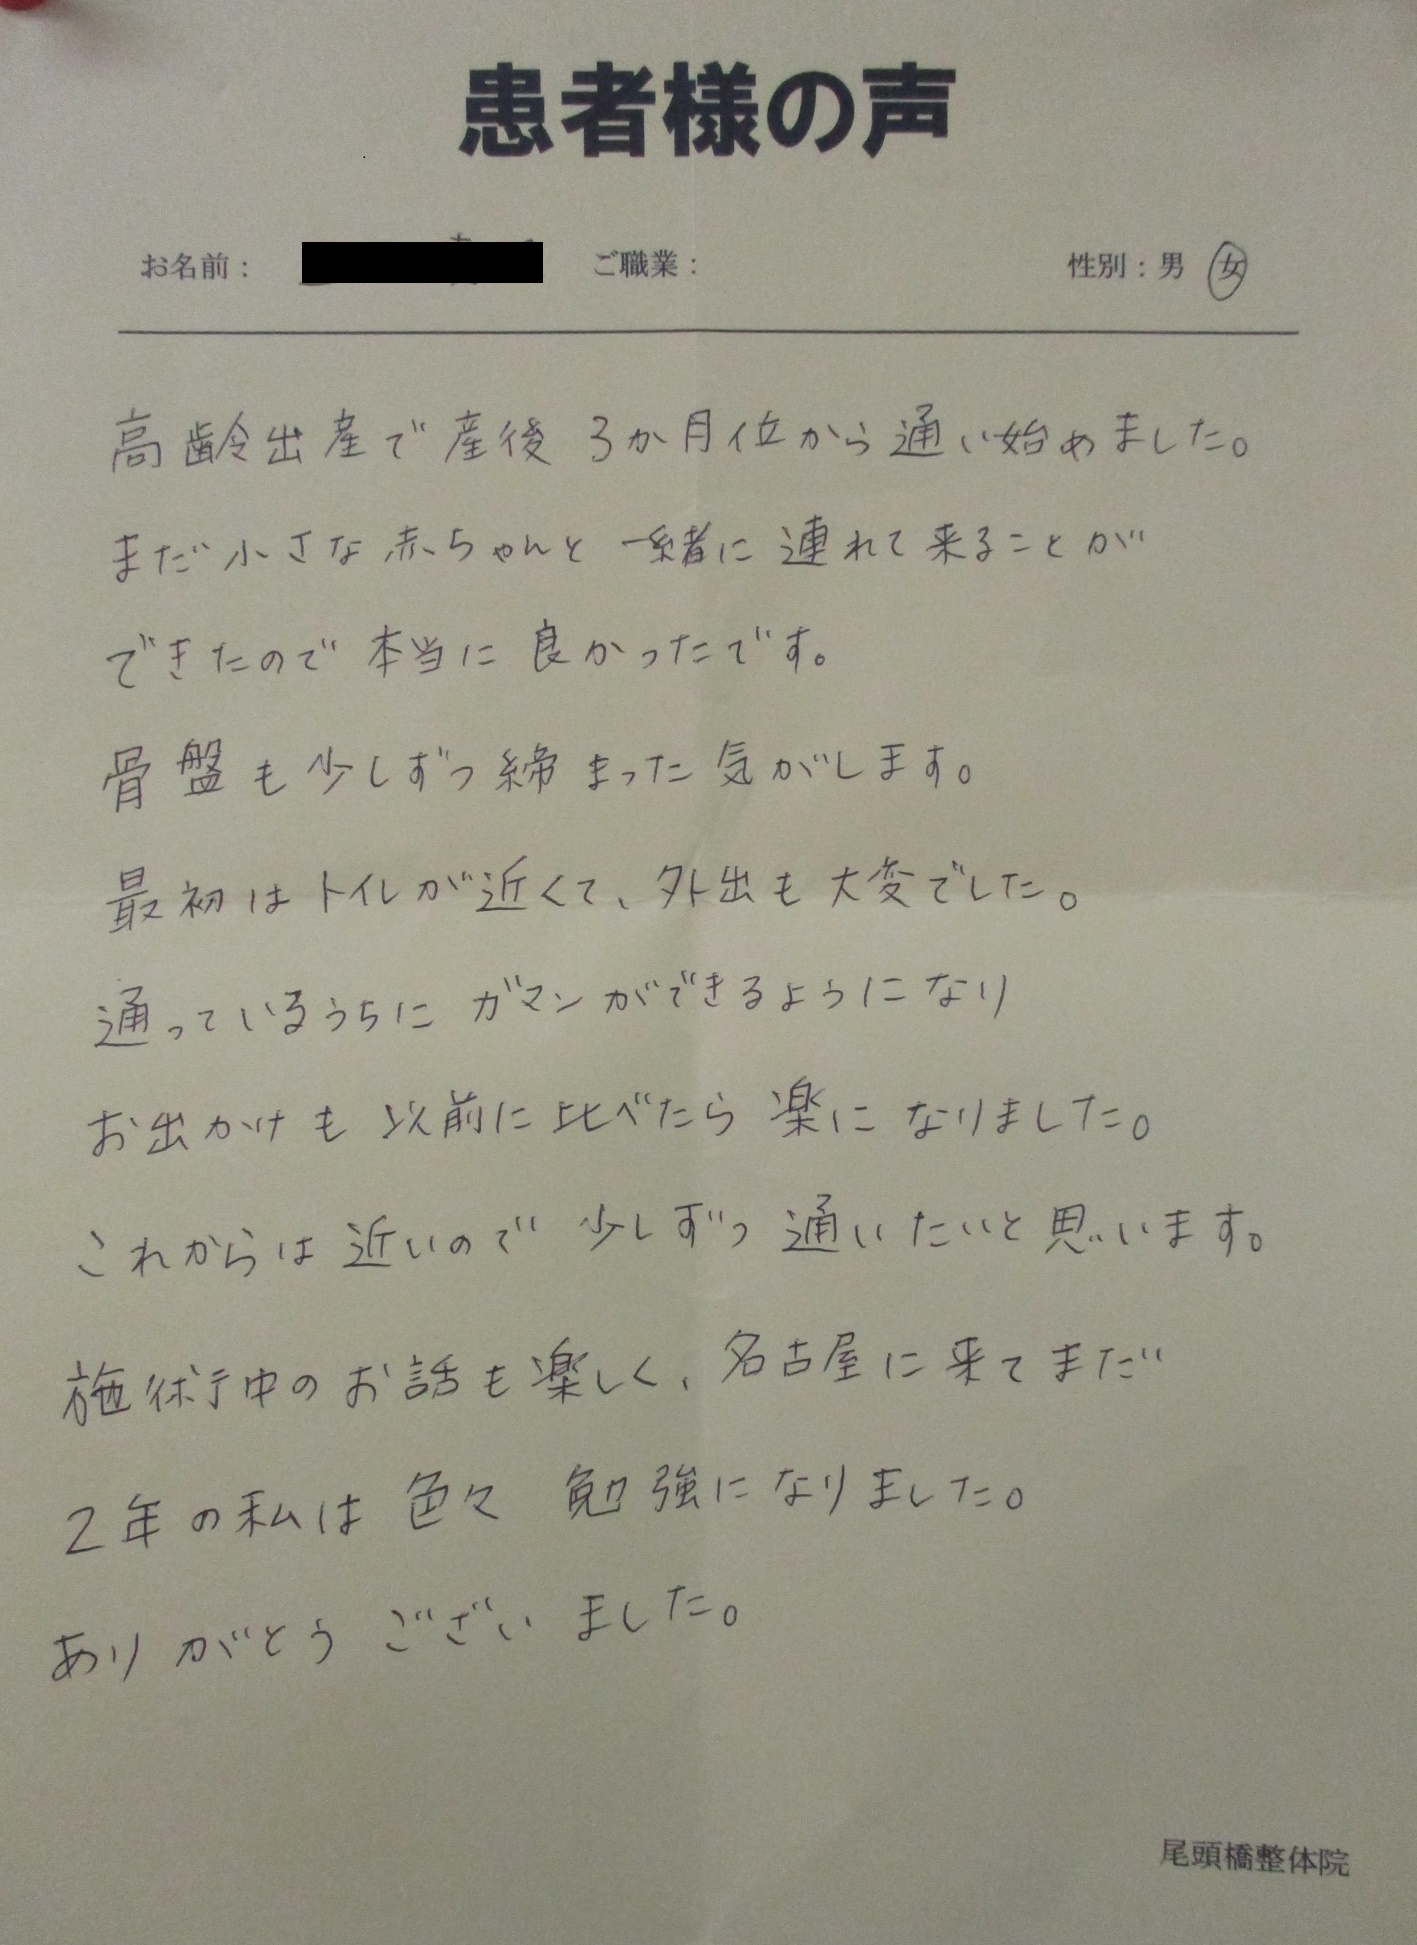 患者様の声
お名前： ご職業： 性別：男 女
高齢出産で産後 3か月位から通い始めました。
まだ小さな赤ちゃんと一緒に連れて来ることが
できたので本当に良かったです。
骨盤も少しずつ締まった気がします。
最初はトイレが近くて、外出も大変でした。
通っているうちにガマンができるようになり
お出かけも以前に比べたら楽になりました。
これからは近いので少しずつ通いたいと思います。
施術中のお話も楽しく、名古屋に来てまだ
2年の私は色々 勉強になりました。
ありがとうございました。
尾頭橋整体院